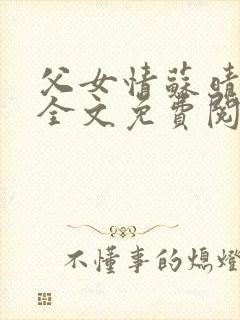 父女情蘇晴
全文免費閱
不懂事的熄燈